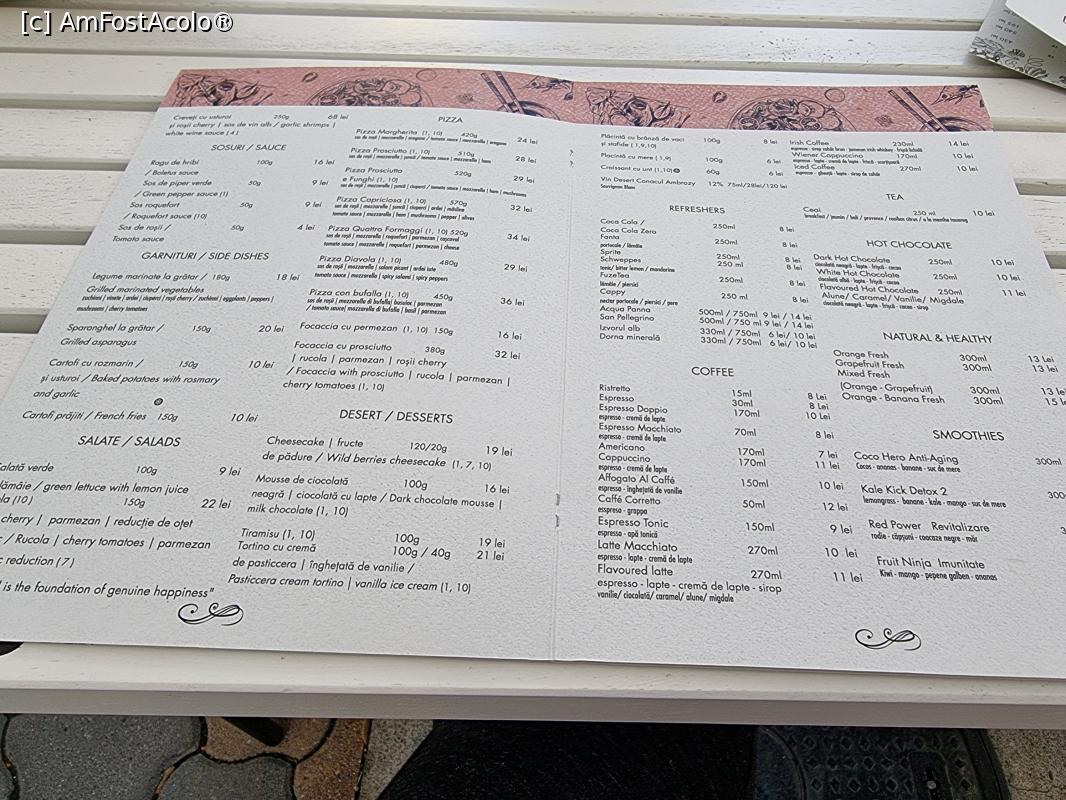 [c] AmFostAcolo®
Creveți cu usturoi 250g 68 lei
și roșii cherry | sos de vin alb / garlic shrimps |
white wine sauce ( 4 )
SOSURI / SAUCE
Ragu de hribi 100g 16 lei
/ Boletus sauce
Sos de piper verde 50g 9 lei
/ Green pepper sauce (1)
Sos roquefort 50g 9 lei
/ Roquefort sauce (10)
Sos de roșii / 50g 4 lei
Tomato sauce
GARNITURI / SIDE DISHES
Legume marinate la grătar / 180g 18 lei
Grilled marinated vegetables
zucchini | vinete | ardei | ciuperci | roșii cherry / zucchini | eggplants | peppers |
mushrooms | cherry tomatoes
Sparanghel la grătar / 150g 20 lei
Grilled asparagus
Cartofi cu rozmarin / 150g 10 lei
și usturoi / Baked potatoes with rosmary
and garlic
Cartofi prăjiți / French fries 150g 10 lei
SALATE / SALADS
Salată verde 100g 9 lei
lămâie / green lettuce with lemon juice
(10) 150g 22 lei
cherry | parmezan | reducție de oțet
/ Rucola | cherry tomatoes | parmezan
reduction (7)
is the foundation of genuine happiness"
PIZZA
Pizza Margherita (1, 10) 420g 24 lei
sos de roșii | mozzarella | oregano / tomato sauce | mozzarella | oregano
Pizza Prosciutto (1, 10) 510g 28 lei
sos de roșii | mozzarella | șuncă / tomato sauce | mozzarella | ham
Pizza Prosciutto 520g 29 lei
e Funghi (1, 10)
sos de roșii | mozzarella | șuncă | ciuperci / tomato sauce | mozzarella | ham | mushrooms
Pizza Capriciosa (1, 10) 570g 32 lei
sos de roșii | mozzarella | șuncă | ciuperci | ardei | măsline
tomato sauce | mozzarella | ham | mushrooms | pepper | olives
Pizza Quattro Formaggi (1, 10) 520g 34 lei
sos de roșii | mozzarella | roquefort | parmezan | cașcaval
tomato sauce | mozzarella | roquefort | parmezan | cheese
Pizza Diavola (1, 10) 480g 29 lei
sos de roșii | mozzarella | salam picant | ardei iute
tomato sauce | mozzarella | spicy salami | spicy peppers
Pizza con bufalla (1, 10) 450g 36 lei
sos de roșii | mozzarella di bufalla | busuioc | parmezan
/ tomato sauce| mozzarella di bufalla | basil | parmezan
Focaccia cu permezan (1, 10) 150g 16 lei
Focaccia cu prosciutto 380g 32 lei
| rucola | parmezan | roșii cherry
/ Focaccia with prosciutto | rucola | parmezan |
cherry tomatoes (1, 10)
DESERT / DESSERTS
Cheesecake | fructe 120/20g 19 lei
de pădure / Wild berries cheesecake (1, 7, 10)
Mousse de ciocolată 100g 16 lei
neagră | ciocolată cu lapte / Dark chocolate mousse |
milk chocolate (1, 10)
Tiramisu (1, 10) 100g 19 lei
Tortino cu cremă 100g / 40g 21 lei
de pasticcera | înghețată de vanilie /
Pasticcera cream tortino | vanilla ice cream (1, 10)
Plăcintă cu brânză de vaci 100g 8 lei
și stafide (1,9,10)
Plăcintă cu mere (1,9) 100g 6 lei
Croissant cu unt (1,10) 60g 6 lei
Vin Desert Conacul Ambrozy 12% 75ml/28lei/120 lei
Sauvignon Blanc
REFRESHERS
Coca Cola / 250ml 8 lei
Coca Cola Zero
Fanta 250ml 8 lei
portocale / lămâie
Sprite 250ml 8 lei
Schweppes 250 ml 8 lei
tonic/ bitter lemon / mandarine
FuzeTea 250ml 8 lei
lămâie / piersici
Cappy 250 ml 8 lei
nectar portocale / piersici / pere
Acqua Panna 500ml / 750ml 9 lei / 14 lei
San Pellegrino 500ml / 750 ml 9 lei / 14 lei
Izvorul alb 330ml / 750ml 6 lei/ 10 lei
Dorna minerală 330ml / 750ml 6 lei/ 10 lei
COFFEE
Ristretto 15ml 8 Lei
Espresso 30ml 8 Lei
Espresso Doppio 170ml 10 Lei
espresso - cremă de lapte
Espresso Macchiato 70ml 8 lei
espresso - cremă de lapte
Americano 170ml 7 lei
Cappuccino 170ml 11 lei
espresso - cremă de lapte
Affogato Al Caffé 150ml 10 lei
espresso - înghețată de vanilie
Caffé Corretto 50ml 12 lei
esspreso - grappa
Espresso Tonic 150ml 9 lei
espresso - apă tonică
Latte Macchiato 270ml 10 lei
espresso - lapte - cremă de lapte
Flavoured latte 270ml 11 lei
espresso - lapte - cremă de lapte - sirop
vanilie/ ciocolată/ caramel/ alune/ migdale
Irish Coffee 230ml 14 lei
espresso - sirop zahăr brun - jameson irish whiskey - frișcă lichidă
Wiener Cappuccino 170ml 10 lei
espresso - lapte - cremă de lapte - frișcă - scorțișoară
Iced Coffee 270ml 10 lei
espresso - gheață - lapte - sirop de zahăr
TEA
Ceai 250 ml 10 lei
breakfast / jasmin / boli / provence / rooibos citrus / a la menthe nanamy
HOT CHOCOLATE
Dark Hot Chocolate 250ml 10 lei
ciocolată neagră - lapte - frișcă - cacao
White Hot Chocolate 250ml 10 lei
ciocolată albă - lapte - frișcă - cacao
Flavoured Hot Chocolate 250ml 11 lei
Alune/ Caramel/ Vanilie/ Migdale
ciocolată neagră - lapte - frișcă - cacao - sirop
NATURAL & HEALTHY
Orange Fresh 300ml 13 Lei
Grapefruit Fresh 300ml 13 lei
Mixed Fresh
(Orange - Grapefruit) 300ml 13 lei
Orange - Banana Fresh 300ml 15 lei
SMOOTHIES
Coco Hero Anti-Aging 300ml
Cocos - ananas - banane - suc de mere
Kale Kick Detox 2 300
lemongrass - banane - kale - mango - suc de mere
Red Power Revitalizare 3
rodie - căpșuni - coacaze negre - măr
Fruit Ninja Imunitate
Kiwi - mango - pepene galben - ananas